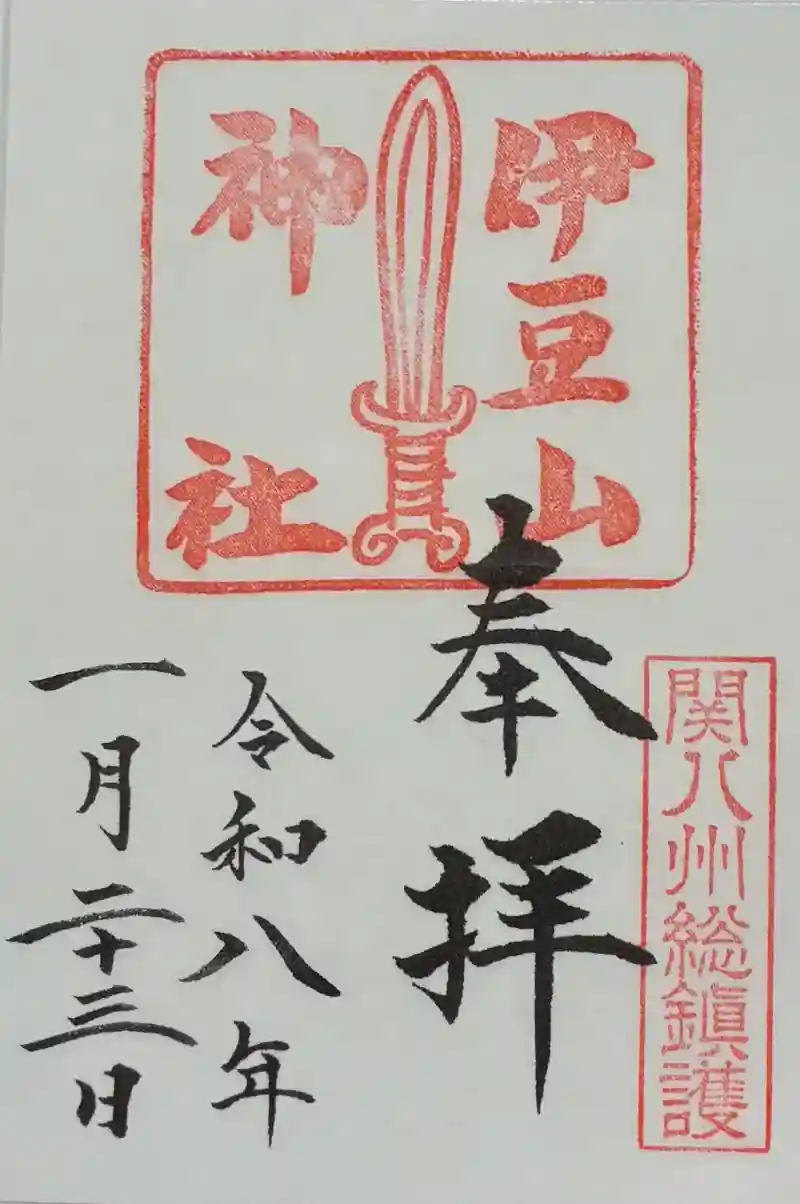 伊豆山
神社
関八州総鎮護
奉拝
令和八年
一月二十三日